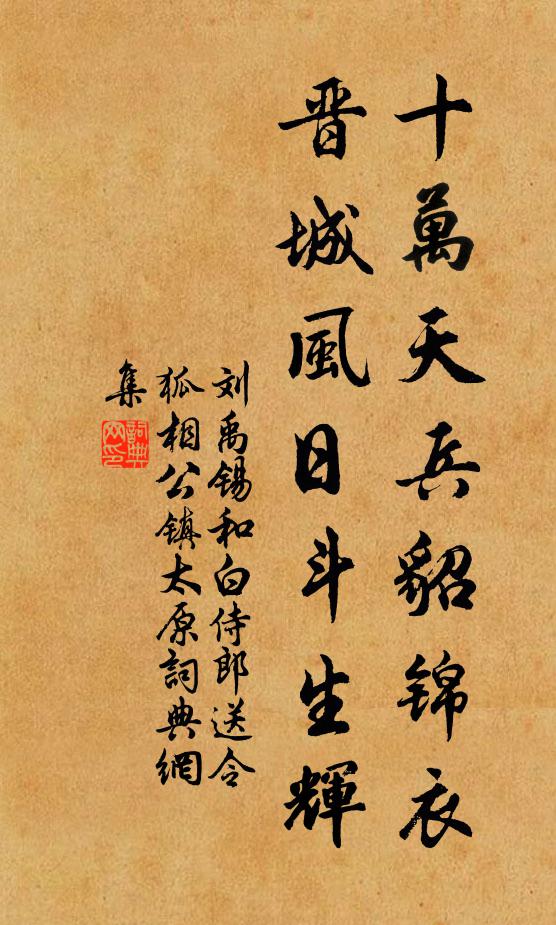 十萬天兵貂錦衣
晋城風日斗生輝
刘禹锡和白侍郎送令
狐相公镇太原詞典網
集
詞典
网印